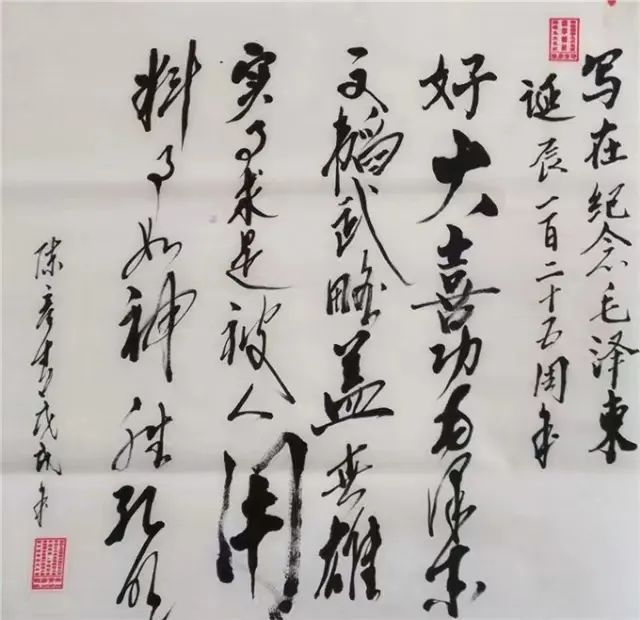 写在纪念毛泽东
诞辰一百二十五周年
好大喜功毛泽东
文韬武略盖英雄
实事求是被人用
料事如神胜孔明
陈彦戊戌年